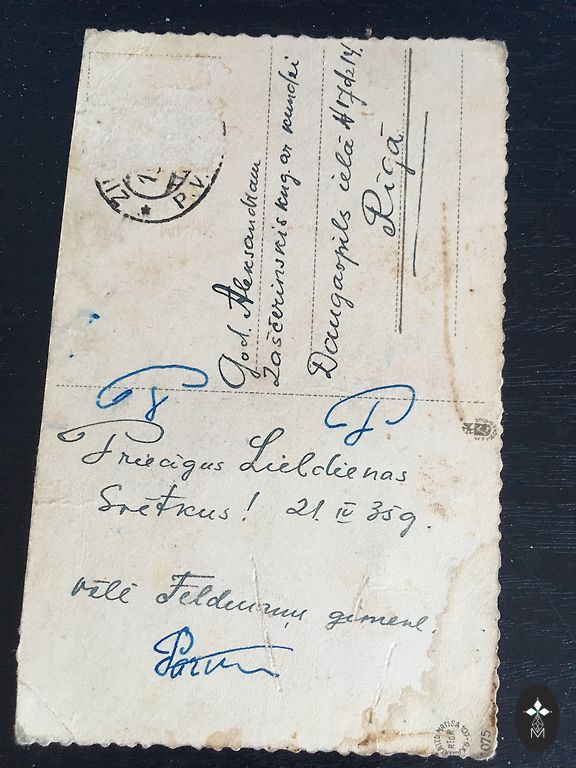 God. Aleksandram
Zaščerinskis kng. ar kundzi
Daugavpils ielā № 17 dz 14.
Rīgā
Priecīgus Lieldienas
Svētkus! 21. IV 35 g.
vēlē Feldmaņu ģimene.
P.V.
RĪGĀ
075
M